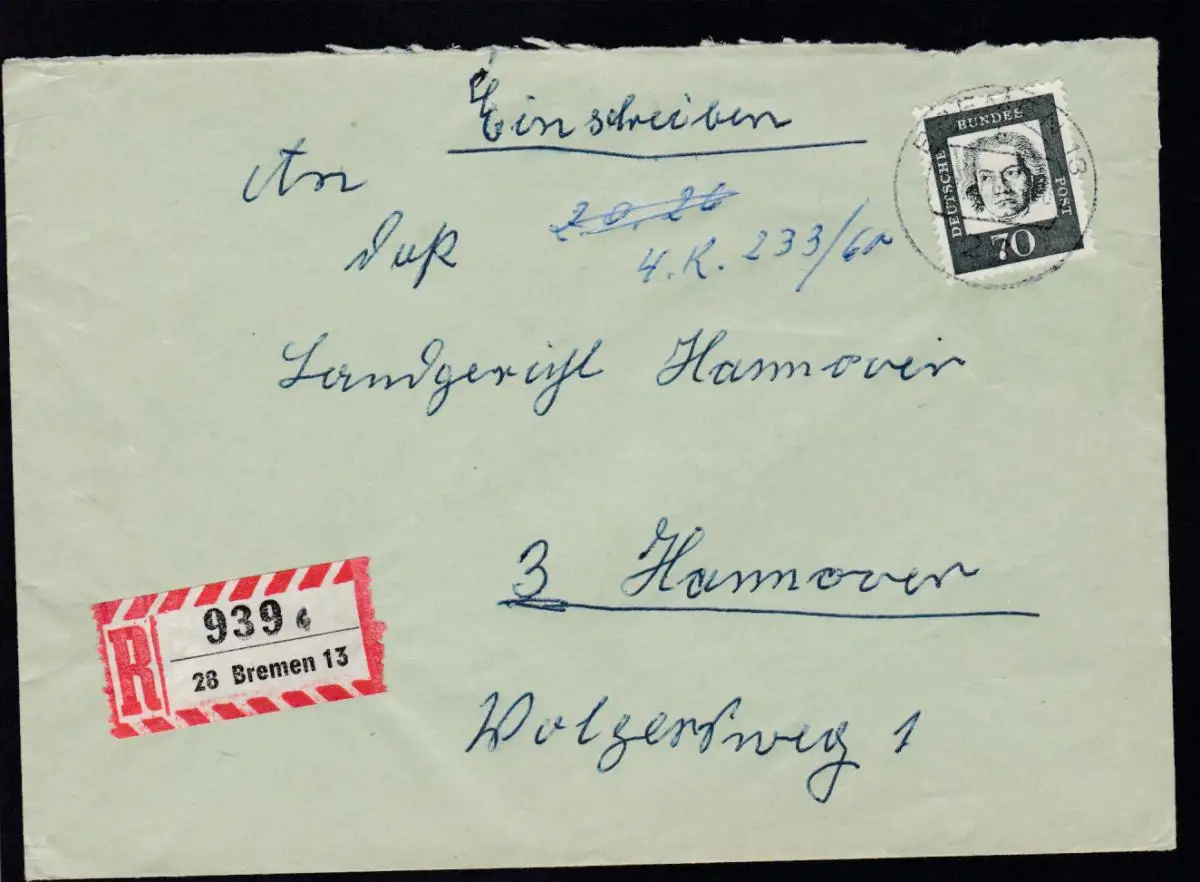 Einschreiben
An
daß
20.26
4.R. 233/61
Landgericht Hannover
3 Hannover
Volgersweg 1
DEUTSCHE BUNDES POST
70
13
R
939
28 Bremen 13